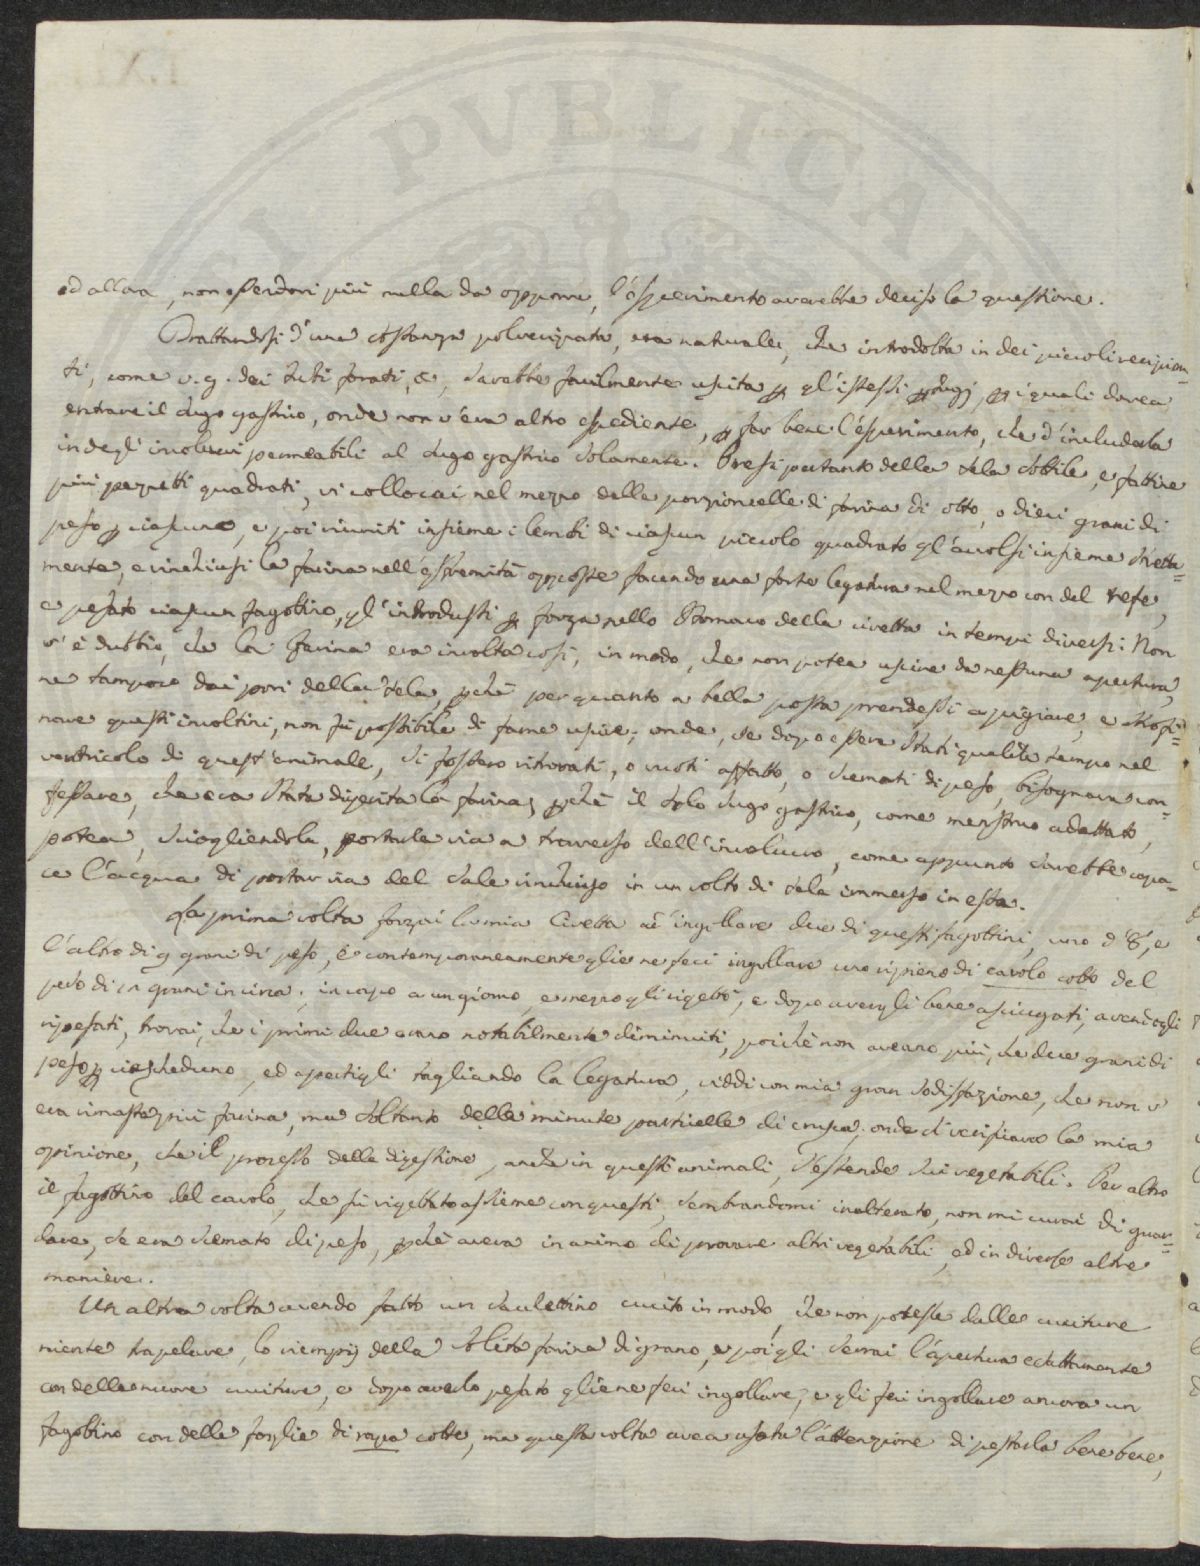 ed allora, non essendovi più nulla da opporre, l'esperimento avarebbe deciso la questione.
Trattandosi d'una sostanza polverizzata, era naturale, che introdotta in dei piccoli recipien=
ti, come v.g. dei tubi forati, &, sarebbe facilmente uscita p gl'istessi , p i quali dovea
entrare il sugo gastrico, onde non v'era altro espediente, p far bene l'esperimento, che d'includerla
in degl'involucri permeabili al sugo gastrico solamente. Presi pertanto della tela sottile, e fattine
più pezzetti quadrati, vi collocai nel mezzo delle porzioncelle di farina di otto, o dieci grani di
peso p ciascuno, e poi riuniti insieme i lembi di ciascun piccolo quadrato gl'avvolsi insieme stretta=
mente, e rinchiusi la farina nell'estremità opposte facendo una forte legatura nel mezzo con del refe,
e pesato ciascun fagottino, gl'introdussi p forza nello stomaco della civetta in tempi diversi: Non
v'è dubbio, che la farina era involta così, in modo, che non potea uscire da nessuna apertura,
ne tampoco dai pori della tela, pchè per quanto a bella posta prendessi a pigiare, e strofi=
nare questi involtini, non fù possibile di farne uscire; onde, se dopo essere stati qualche tempo nel
ventricolo di quest'animale, si fossero ritrovati, o vuoti affatto, o scemati di peso, bisognava con=
fessare, che era stata digerita la farina, pchè il solo sugo gastrico, come menstruo adattato,
potea, sciogliendola, portarla via a traverso dell'involucro, come appunto sarebbe capa=
ce l'acqua di portar via del sale rinchiuso in un volto di tela immerso in essa.
La prima volta forzai la mia Civetta ad ingollare due di questi fagottini, uno d'8, e
l'altro di 9 grani di peso, e contemporaneamente gliene feci ingollare uno ripieno di cavolo cotto del
peso di grani in circa; in capo a un giorno, e mezzo gli rigettò, e dopo avergli bene asciugati, avendogli
ripesati, trovai, che i primi due erano notabilmente diminuiti, poichè non aveano più, che due grani di
peso p ciascheduno, ed apertigli tagliando la legatura, viddi con mia gran sodisfazione, che non v'
era rimasta più farina, ma soltanto delle minute particelle di crusca; onde si verificava la mia
opinione, che il processo della digestione, anche in questi animali, s'estende sui vegetabili. Per altro
il fagottino del cavolo, che fù rigettato assieme con questi, sembrandomi inalterato, non mi curai di guar=
dare, se era scemato di peso, pchè aveva in animo di provare altri vegetabili, ed in diverse altre
maniere.
Un altra volta avendo fatto un sacchettino cucito in modo, che non potesse dalle cuciture
niente trapelare, lo riempij della solita farina di grano, e poi gli serrai l'apertura esattamente
con delle nuove cuciture, e dopo averlo pesato gliene feci ingollare, e gli feci ingollare ancora un
fagottino con delle foglie di rapa cotte, ma questa volta avea usata l'attenzione di pestarla bene bene,